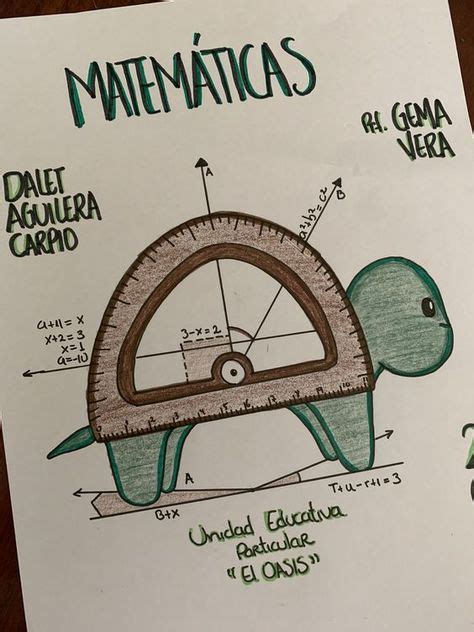 MATEMÁTICAS
Prf. GEMA
VERA
DALET
AGUILERA
CARPIO
A
B
a²+b²=c²
a+11=x
x+2=3
x=1
a=-10
3-x=2
A
B+x
T+u-r+1=3
Unidad Educativa
Particular
"El OASIS"